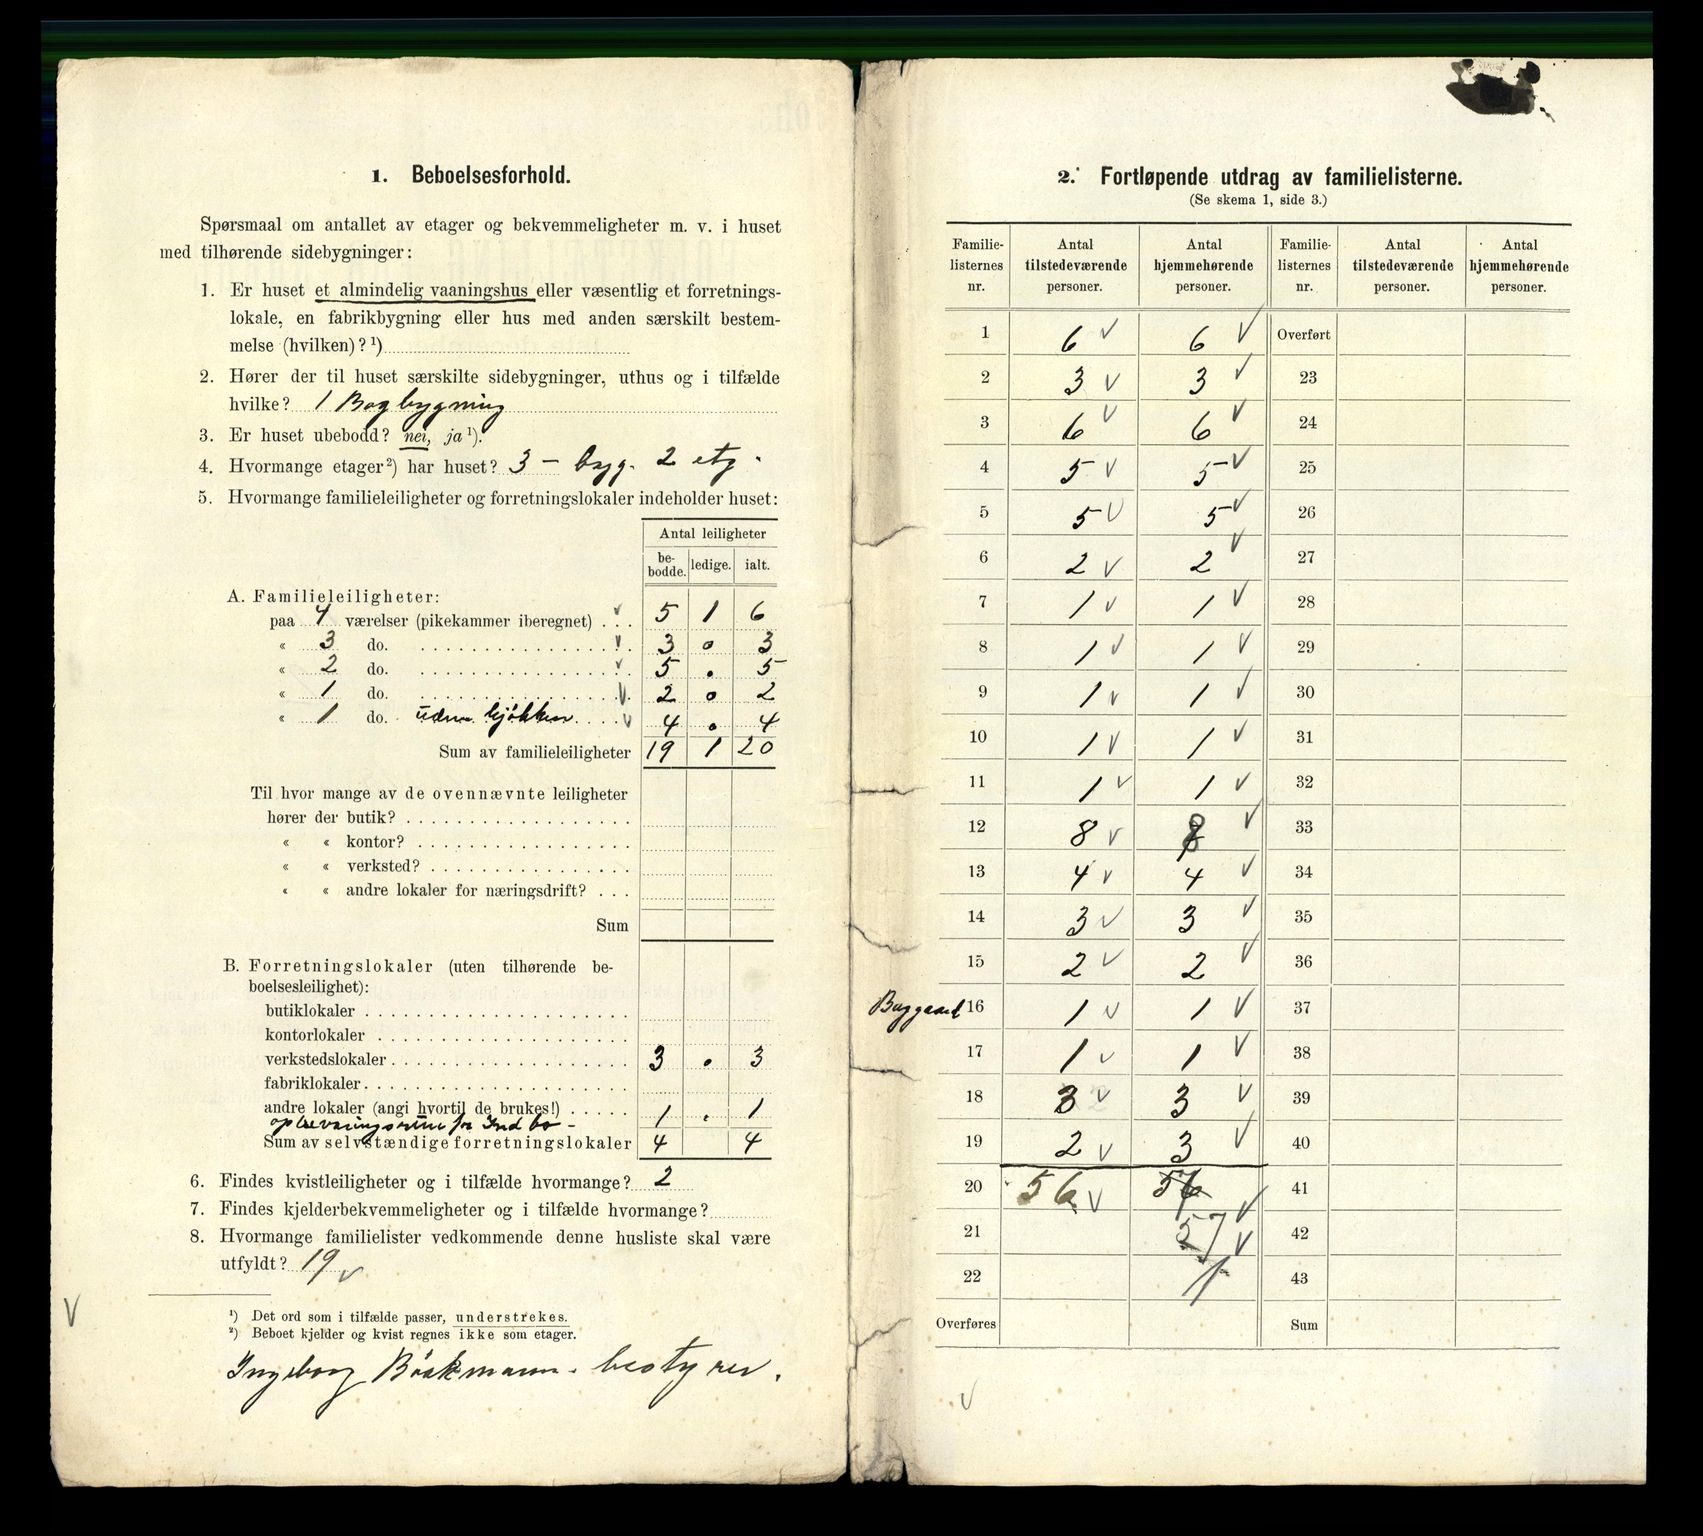 1. Beboelsesforhold.
Spørsmaal om antallet av etager og bekvemmeligheter m. v. i huset
med tilhørende sidebygninger:
1. Er huset et almindelig vaaningshus eller væsentlig et forretnings-
lokale, en fabrikbygning eller hus med anden særskilt bestem-
melse (hvilken)? ¹)
2. Hører der til huset særskilte sidebygninger, uthus og i tilfælde
hvilke? 1 Bagbygning
3. Er huset ubebodd? nei, ja ¹).
4. Hvormange etager ²) har huset? 3 – byg. 2 etg.
5. Hvormange familieleiligheter og forretningslokaler indeholder huset:
Antal leiligheter
be-bodde. ledige. ialt.
A. Familieleiligheter:
paa 4 værelser (pikekammer iberegnet) . . . 5 1 6
« 3 do. 3 0 3
« 2 do. 5 . 5
« 1 do. 2 0 2
« 1 do. uden kjøkken 4 . 4
Sum av familieleiligheter 19 1 20
Til hvor mange av de ovennævnte leiligheter
hører der butik?
« « kontor?
« « verksted?
« « andre lokaler for næringsdrift?
Sum
B. Forretningslokaler (uten tilhørende be-
boelsesleilighet):
butiklokaler
kontorlokaler
verkstedslokaler 3 . 3
fabriklokaler
andre lokaler (angi hvortil de brukes!) 1 . 1
Sum av selvstændige forretningslokaler 4 4
6. Findes kvistleiligheter og i tilfælde hvormange? 2
7. Findes kjelderbekvemmeligheter og i tilfælde hvormange?
8. Hvormange familielister vedkommende denne husliste skal være
utfyldt? 19 v
¹) Det ord som i tilfælde passer, understrekes.
²) Beboet kjelder og kvist regnes ikke som etager.
Ingeborg Böckmann. bestyrer.
2. Fortløpende utdrag av familielisterne.
(Se skema 1, side 3.)
Familie-listernes nr. Antal tilstedeværende personer. Antal hjemmehørende personer. Familie-listernes nr. Antal tilstedeværende personer. Antal hjemmehørende personer.
1 6 v 6 v Overført
2 3 v 3 v 23
3 6 v 6 v 24
4 5 v 5 v 25
5 5 v 5 v 26
6 2 v 2 v 27
7 1 v 1 v 28
8 1 v 1 v 29
9 1 v 1 v 30
10 1 v 1 v 31
11 1 v 1 v 32
12 8 v 8 v 33
13 4 v 4 v 34
14 3 v 3 v 35
15 2 v 2 v 36
Baggaard 16 1 v 1 v 37
17 1 v 1 v 38
18 3 v 3 v 39
19 2 v 3 v 40
20 56 v 56 v 41
21 57 v 42
22 43
Overføres Sum
v